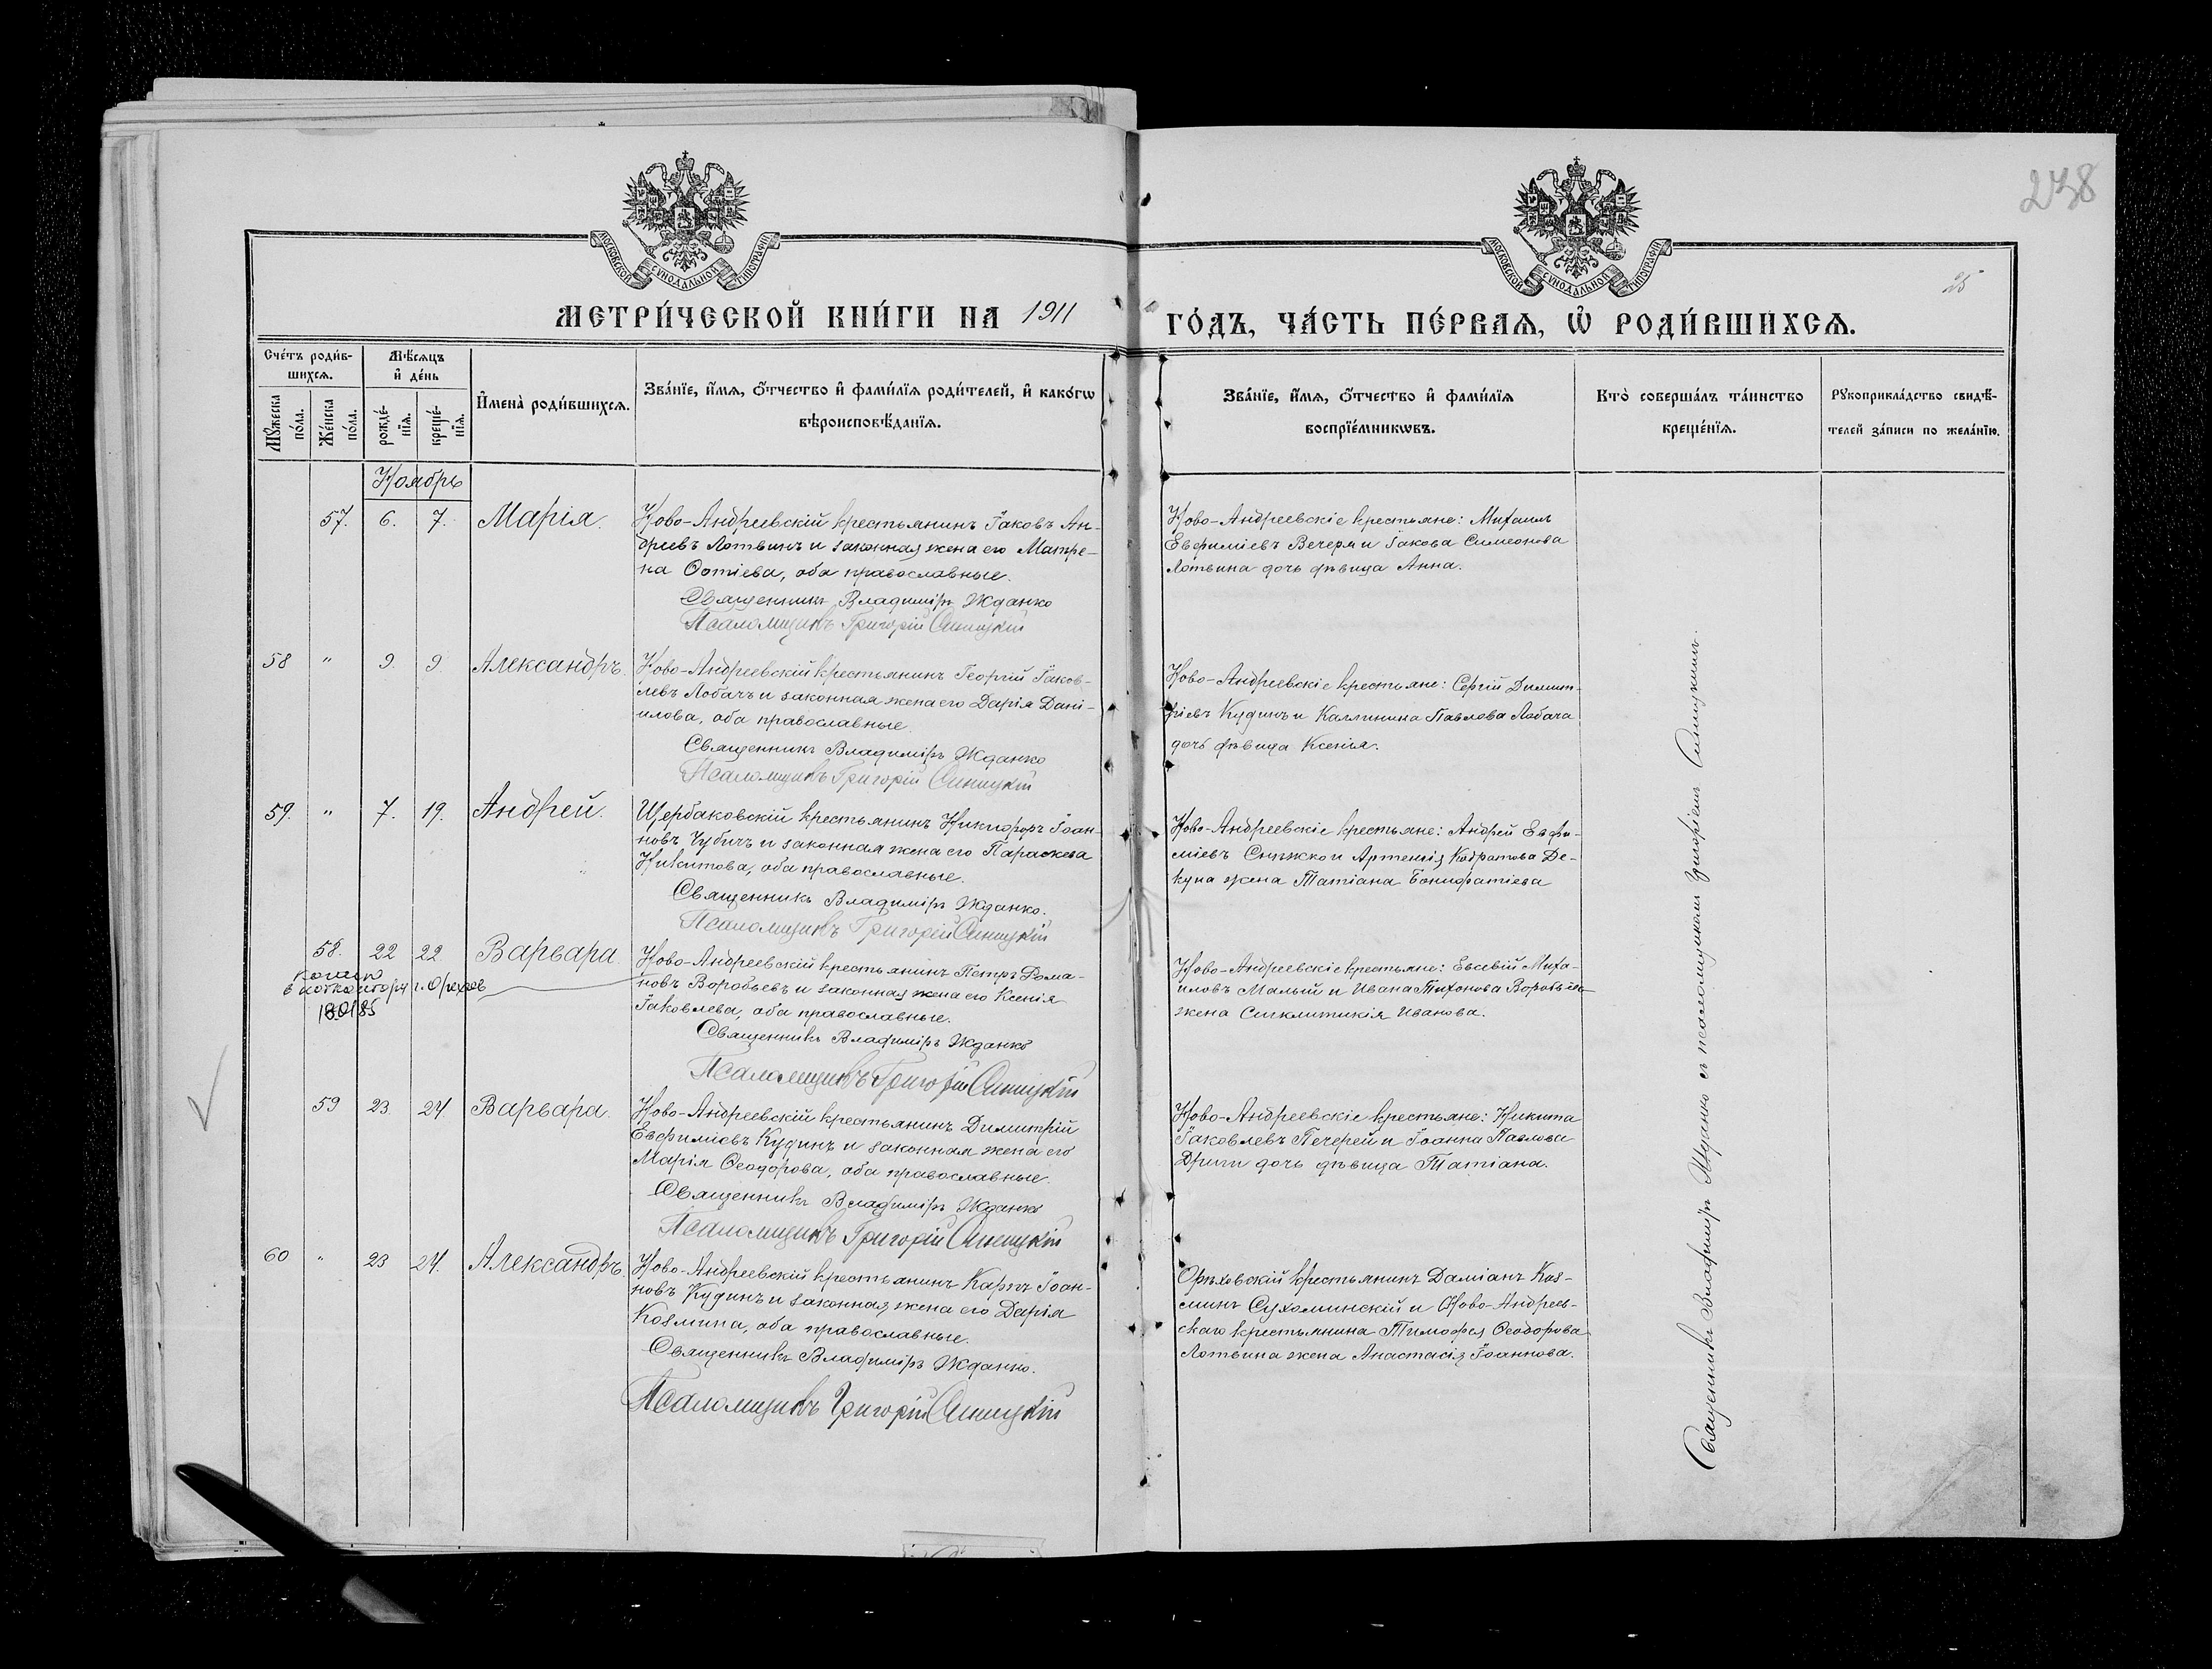 238
25
МОСКОВСКОЙ СѴНОДАЛЬНОЙ ТИПОГРАФІИ
МОСКОВСКОЙ СѴНОДАЛЬНОЙ ТИПОГРАФІИ
МЕТРИ́ЧЕСКОЙ КНИ́ГИ НА 1911 ГО́ДЪ, ЧА́СТЬ ПЕ́РВАѦ, Ѽ РОДИ́ВШИХСѦ.
Сче́тъ роди́в-
шихсѧ.
Мѣ́сѧцъ
и҆ де́нь
Мꙋ́жеска
по́ла.
Же́нска
по́ла.
рожде́-
нїѧ.
креще́-
нїѧ.
И҆мена̀ роди́вшихсѧ.
Зва́нїе, и҆́мѧ, ѻ҆́тчество и҆ фами́лїѧ роди́телей, и҆ како́гѡ
вѣроисповѣ́данїѧ.
Зва́нїе, и҆́мѧ, ѻ҆́тчество и҆ фами́лїѧ
воспрїе́мникѡвъ.
Кто̀ соверша́лъ та́инство
креще́нїѧ.
Рꙋкоприкла́дство свидѣ́-
телей за́писи по жела́нїю.
Ноябрь
57. 6. 7. Марія.
Ново-Андреевскій крестьянинъ Іаковъ Ан-
дреевъ Лотвинъ и законная жена его Матре-
на Фотіева, оба православные.
Священникъ Владиміръ Жданко
Псаломщикъ Григорій Синицкій
Ново-Андреевскіе крестьяне: Михаилъ
Евфиміевъ Вечеря и Іакова Симеонова
Лотвина дочь дѣвица Анна.
58 " 9. 9. Александръ.
Ново-Андреевскій крестьянинъ Георгій Іаков-
левъ Лобачъ и законная жена его Дарія Дані-
илова, оба православные.
Священникъ Владиміръ Жданко
Псаломщикъ Григорій Синицкій
Ново-Андреевскіе крестьяне: Сергій Димит-
ріевъ Кудинъ и Каллиника Павлова Лобача
дочь дѣвица Ксенія.
59. " 7. 19. Андрей.
Щербаковскій крестьянинъ Никифоръ Іоан-
новъ Чубичъ и законная жена его Параскева
Никитова, оба православные.
Священникъ Владиміръ Жданко.
Псаломщикъ Григорій Синицкій
Ново-Андреевскіе крестьяне: Андрей Евфи-
міевъ Снѣжко и Артемія Кодратова Де-
куна жена Татіана Вонифатіева
58. 22 22 Варвара
г. Орехов
Ново-Андреевскій крестьянинъ Петръ Рома-
новъ Воробьевъ и законная жена его Ксенія
Іаковлева, оба православные.
Священникъ Владиміръ Жданко
Псаломщикъ Григорій Синицкій
Ново-Андреевскіе крестьяне: Евсевій Миха-
иловъ Малый и Ивана Тихонова Воробьева
жена Синклитикія Иванова.
59 23. 24 Варвара.
Ново-Андреевскій крестьянинъ Димитрій
Евфиміевъ Кудинъ и законная жена его
Марія Ѳеодорова, оба православные.
Священникъ Владиміръ Жданко
Псаломщикъ Григорій Синицкій
Ново-Андреевскіе крестьяне: Никита
Іаковлевъ Печерей и Іоанна Павлова
Дриги дочь дѣвица Татіана.
60 " 23 24. Александръ.
Ново-Андреевскій крестьянинъ Карпъ Іоан-
новъ Кудинъ и законная жена его Дарія
Козмина, оба православные.
Священникъ Владиміръ Жданко.
Псаломщикъ Григорій Синицкій
Орѣховскій крестьянинъ Даміанъ Коз-
минъ Сухоминскій и Ново-Андреев-
скаго крестьянина Тимофея Ѳеодорова
Лотвина жена Анастасія Іоаннова.
Священникъ Владиміръ Жданко съ псаломщикомъ Григоріемъ Синицкимъ.